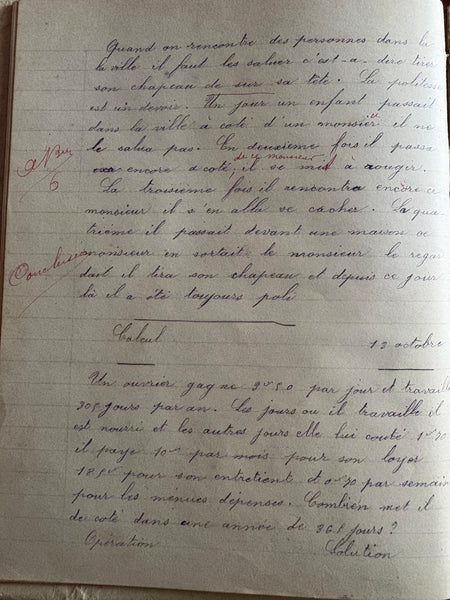 Quand on rencontre des personnes dans la
la ville il faut les saluer c'est-a-dire tirer
son chapeau de sur sa tête. La politesse
est un devoir. Un jour un enfant passait
dans la ville à coté d'un monsieur il ne
le salua pas. En deuxieme fois il passa
encore a coté de ce monsieur, il se mit à rouger.
La troisieme fois il rencontra encore ce
monsieur il s'en alla se cacher. La qua
trieme il passait devant une maison ce
monsieur en sortait le monsieur le regar
dait il tira son chapeau et depuis ce jour
là il a été toujours poli
6
Conclusion
Calcul
12 octobre
Un ouvrier gagne par jour et travaille
305 jours par an. Les jours ou il travaille il
est nourri et les autres jours elle lui coute
il paye par mois pour son loyer
pour son entretient et par semaine
pour les menues dépenses. Combien met il
de coté dans une annee de 365 jours?
Opération
Solution